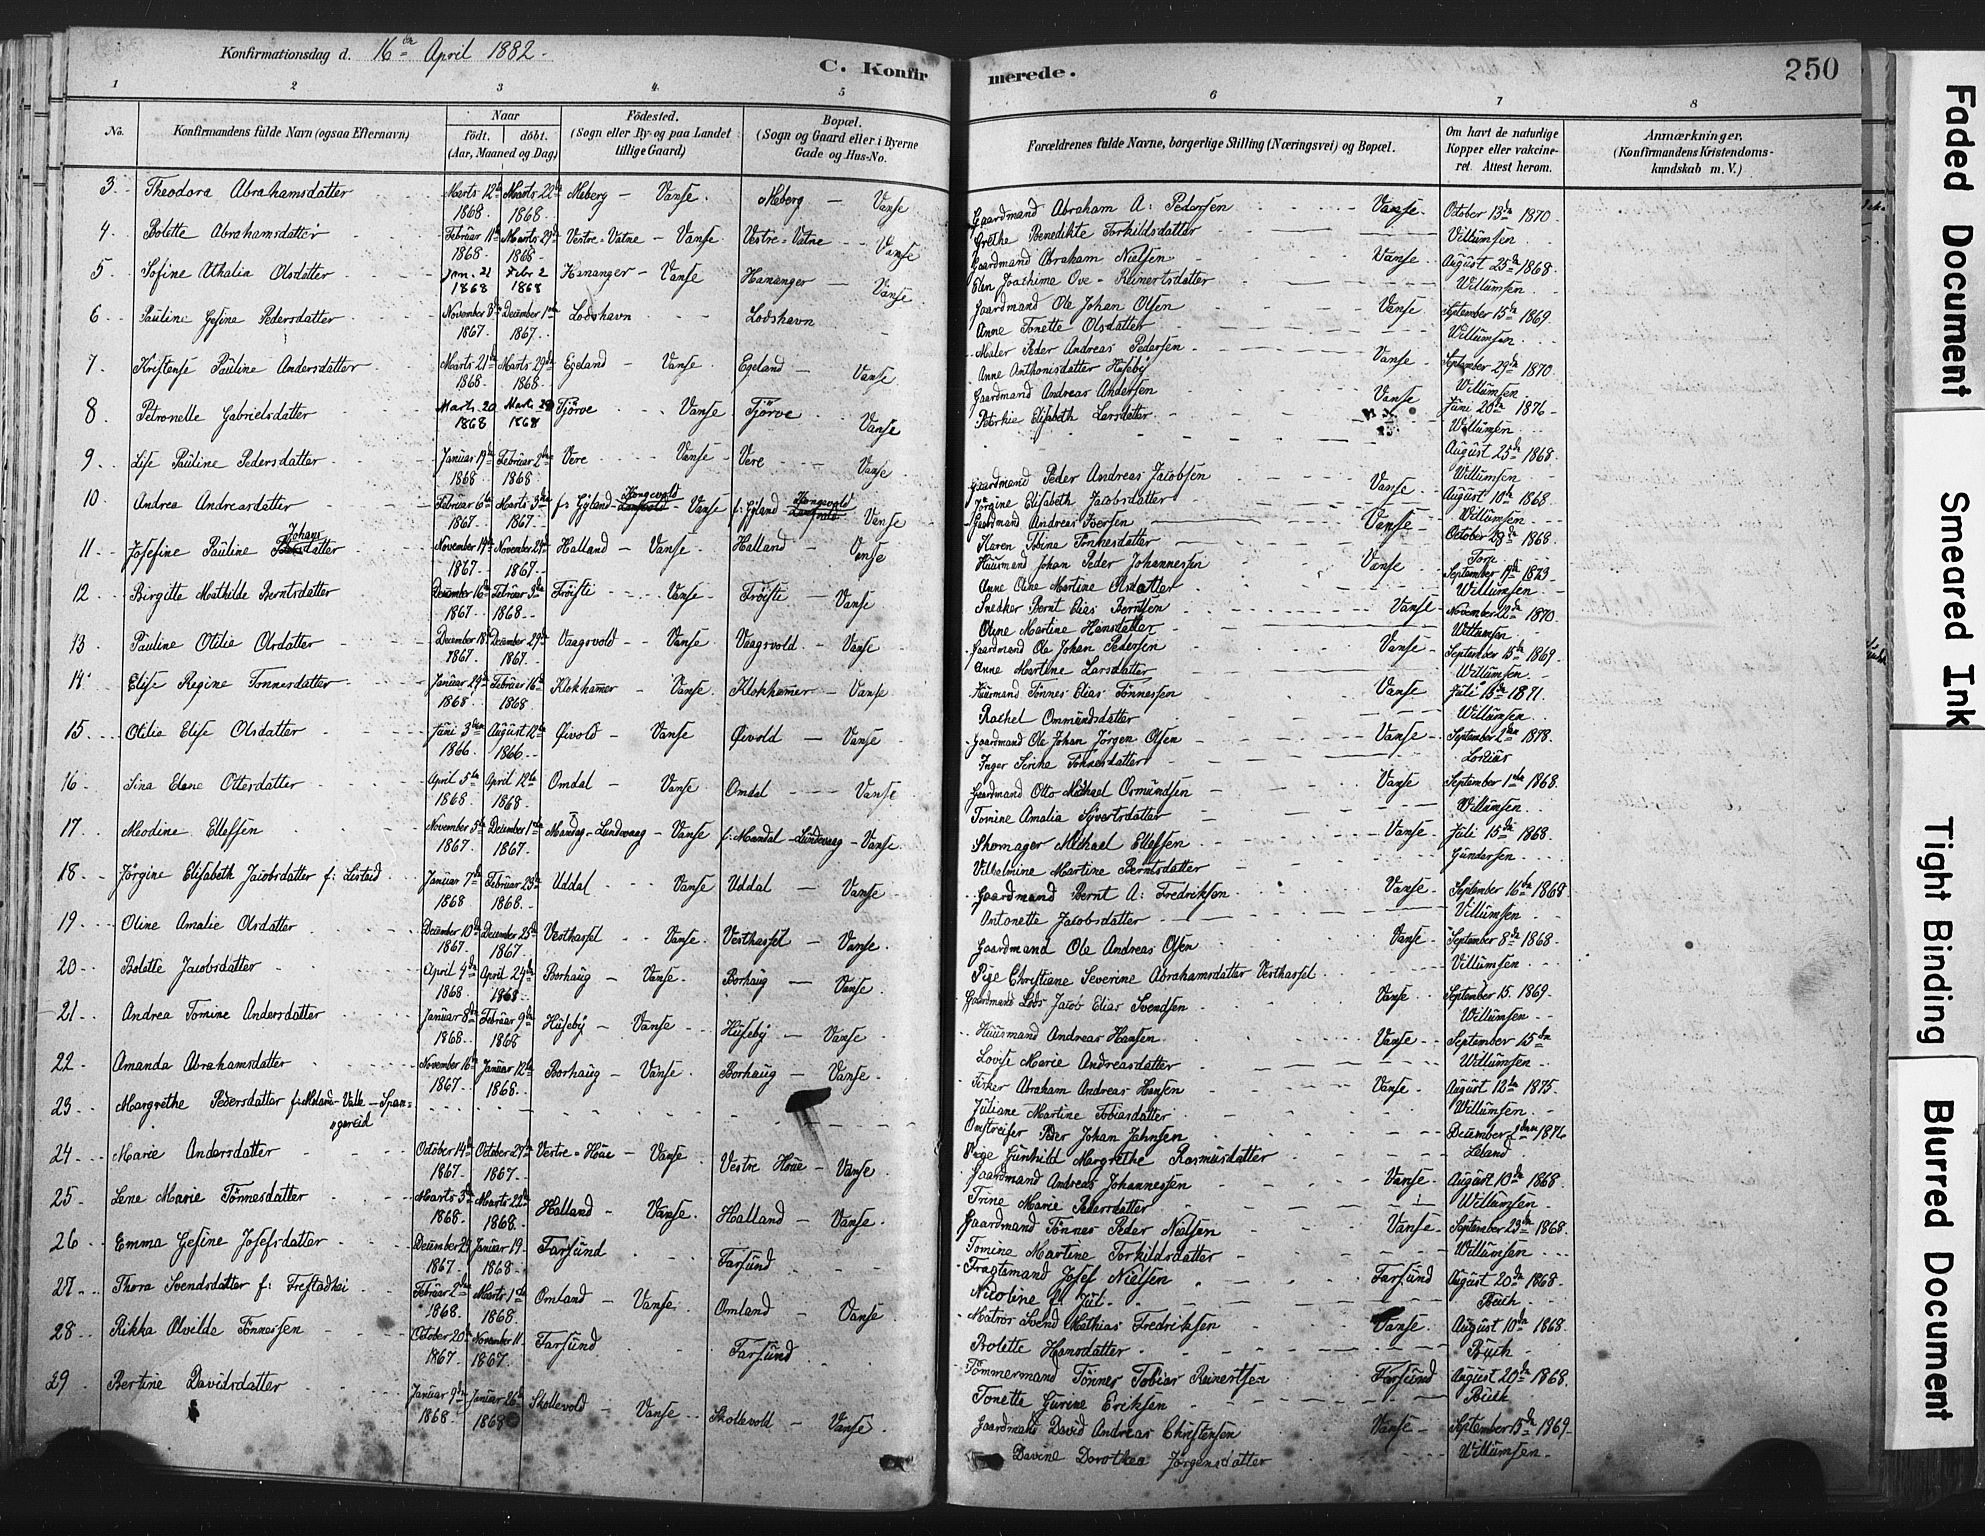 Konfirmationsdag d. 16de April 1882.
C. Konfirmerede.
250
1 2 3 4. 5 6 7 8
No. Konfirmandens fulde Navn (ogsaa Efternavn) Naar født. døbt. (Aar, Maaned og Dag) Fødested. (Sogn eller By- og paa Landet tillige Gaard) Bopæl. (Sogn og Gaard eller i Byerne Gade og Hus-No. Forældrenes fulde Navne, borgerlige Stilling (Næringsvei) og Bopæl. Om havt de naturlige Kopper eller vakcineret. Attest herom. Anmærkninger. (Konfirmandens Kristendomskundskab m. V.)
3. Theodora Abrahamsdatter Marts 12te 1868. Marts 22de 1868. Meberg – Vanse. Meberg – Vanse Gaardmand Abraham A: Pedersen Vanse. October 13de 1870.
Grethe Benedikte Torkildsdatter Villumsen
4 Bolette Abrahamsdatter Februar 11te 1868. Marts 29de 1868. Vestre-Vatne – Vanse Vestre-Vatne Vanse Gaardmand Abraham Nielsen Vanse August 25de 1868.
Elen Joachime Ove-Reinertsdatter Willumsen
5 Sofine Athalia Olsdatter Jan. 21 1868 Febr 2 1868 Hananger – Vanse Hananger – Vanse Gaardmand Ole Johan Olsen Vanse September 15de 1869.
Anne Tonette Olsdatter Willumsen
6 Pauline Gesine Pedersdatter November 8de 1867. December 1ste 1867. Lodshavn Lodshavn Maler Peder Andreas Pedersen Vanse September 29de 1870
Anne Anthonisdatter Huseby Willumsen
7 Kristense Pauline Andersdatter Marts 21de 1868. Marts 29de 1868. Egeland – Vanse Egeland – Vanse Gaardmand Andreas Andersen Vanse Juni 20de 1876
Elisabeth Larsdatter Willumsen
8 Petronelle Gabrielsdatter Marts 20 1868 Marts 29 1868 Tjörve Vanse Tjörve Vanse August 25de 1868
Willumsen
9 Lise Pauline Pedersdatter Januar 19de 1868. Februar 2de 1868 Vere Vanse Vere Vanse Gaardmand Peder Andreas Jacobsen Vanse August 10de 1868
Jörgine Elisabeth Jacobsdatter Willumsen
10 Andrea Andreasdatter Februar 6te 1867. Marts 3die 1867. f: Gyland Kongevold – Vanse f: Gyland Kongevold Vanse Gaardmand Andreas Iversen Vanse October 28de 1868.
Karen Tobine Tönnesdatter Torp
11 Josefine Pauline Johansdatter November 14de 1867. November 24de 1867. Halland – Vanse. Halland – Vanse Huusmand Johan Peder Johannessen Vanse September 19de 1873
Anne Oline Martine Olsdatter Willumsen
12 Birgitte Mathilde Berntsdatter December 16de 1867. Februar 3die 1868. Tröiste Vanse. Tröiste – Vanse Snedker Bernt Elias Berntsen Vanse November 12de 1870.
Oline Martine Hansdatter Willumsen
13 Pauline Otilie Olsdatter December 18de 1867. December 29de 1867. Vaagsvold – Vanse Vaagsvold – Vanse Gaardmand Ole Johan Pedersen Vanse September 15de 1869.
Anne Martine Larsdatter Willumsen
14 Elise Regine Tonnesdatter Januar 29de 1868. Februar 16de 1868 Klokhamer – Vanse. Klokhamer – Vanse Huusmand Tönnes Elias Tönnessen Vanse Juli 15de 1871.
Rachel Ommundsdatter Willumsen
15 Otilie Elise Olsdatter Juni 3die 1866. August 12te 1866. Øivold – Vanse Øivold – Vanse Gaardmand Ole Johan Jörgen Olsen Vanse September 2den 1878.
Inger Serine Tonnesdatter
16 Sina Elene Ottersdatter April 5te 1868. April 12te 1868. Omdal – Vanse Omdal Vanse Gaardmand Otto Michael Osmundsen Vanse September 1ste 1868.
Tomine Amalia Syvertsdatter Willumsen
17 Meodine Ellefsen November 5te 1867. December 1ste 1867. Mandag – Lundevaag – Vanse f: Mandal – Lundevaag – Vanse Skomager Michael Ellefsen Vanse Juli 15de 1868
Vilhelmine Martine Berntsdatter Gundersen
18 Jörgine Elisabeth Jacobsdatter f: Listaid Januar 7de 1868 Februar 23de 1868. Uddal Vanse Uddal – Vanse Gaardmand Bernt A: Fredriksen Vanse September 16de 1868
Antonette Jacobsdatter Villumsen
19 Oline Amalie Olsdatter December 10de 1867. December 25de 1867 Vesthassel Vanse Vesthassel – Vanse Gaardmand Ole Andreas Olsen Vanse September 8de 1868
Pige Christiane Severine Abrahamsdatter Vesthassel Villumsen
20 Bolette Jacobsdatter April 4de 1868 April 24de 1868 Borhaug – Vanse. Borhaug – Vanse. Gaardmand Lods Jacob Elias Svendsen Vanse September 15. 1869
Willumsen
21 Andrea Tomine Andersdatter Januar 8de 1868. Februar 9de 1868 Huseby – Vanse Huseby – Vanse. Huusmand Andreas Hansen Vanse September 15de
Lovise Marie Andreasdatter Willumsen
22 Amanda Abrahamsdatter November 16de 1867. Januar 12te 1868. Borhaug – Vanse. Borhaug – Vanse. Fisker Abraham Andreas Hansen Vanse August 12te 1875
Juliane Martine Tobiasdatter Willumsen
23 Margrethe Pedersdatter f: Meland – Valle – Spangereid Omstreifer Peder Johan Jahnsen December 2den 1876
Pige Gunhild Margrethe Rasmusdatter Leland
24 Marie Andersdatter October 14de 1867. October 27de 1867. Vestre-Houe – Vanse Vestre Houe – Vanse Gaardmand Andreas Johannessen Vanse August 10de 1868
Trine Marie Pedersdatter Willumsen
25 Lene Marie Tönnesdatter Marts 5te 1868. Marts 22de 1868. Halland – Vanse. Halland – Vanse. Gaardmand Tönnes Peder Nielsen Vanse September 23de 1868.
Tomine Martine Torkildsdatter Willumsen
26 Emma Gesine Josefsdatter December 29 1867. Januar 19. 1868. Farsund Farsund Fragtemand Josef Nielsen Farsund August 20de 1868.
Nicoline f: Jul. Buch
27 Thora Svendsdatter f: Trestadhei Februar 2den 1868. Marts 1ste 1868 Omland – Vanse. Omland – Vanse. Matros Svend Mathias Fredriksen Vanse August 10de 1868.
Bolette Hansdatter Buch
28 Rikka Alvilde Tönnessen October 20de 1867. November 11. 1867. Farsund Farsund Tömmermand Tönnes Tobias Reinertsen Farsund August 20de 1868.
Tonette Gurine Eriksen Buch
29 Bertine Davidsdatter Januar 9de 1868. Januar 26de 1868 Skollevold – Vanse Skollevold – Vanse. Gaardmand David Andreas Christensen Vanse September 15de 1869.
Davine Dorothea Jörgensdatter Willumsen
Faded Document
Smeared Ink
Tight Binding
Blurred Document